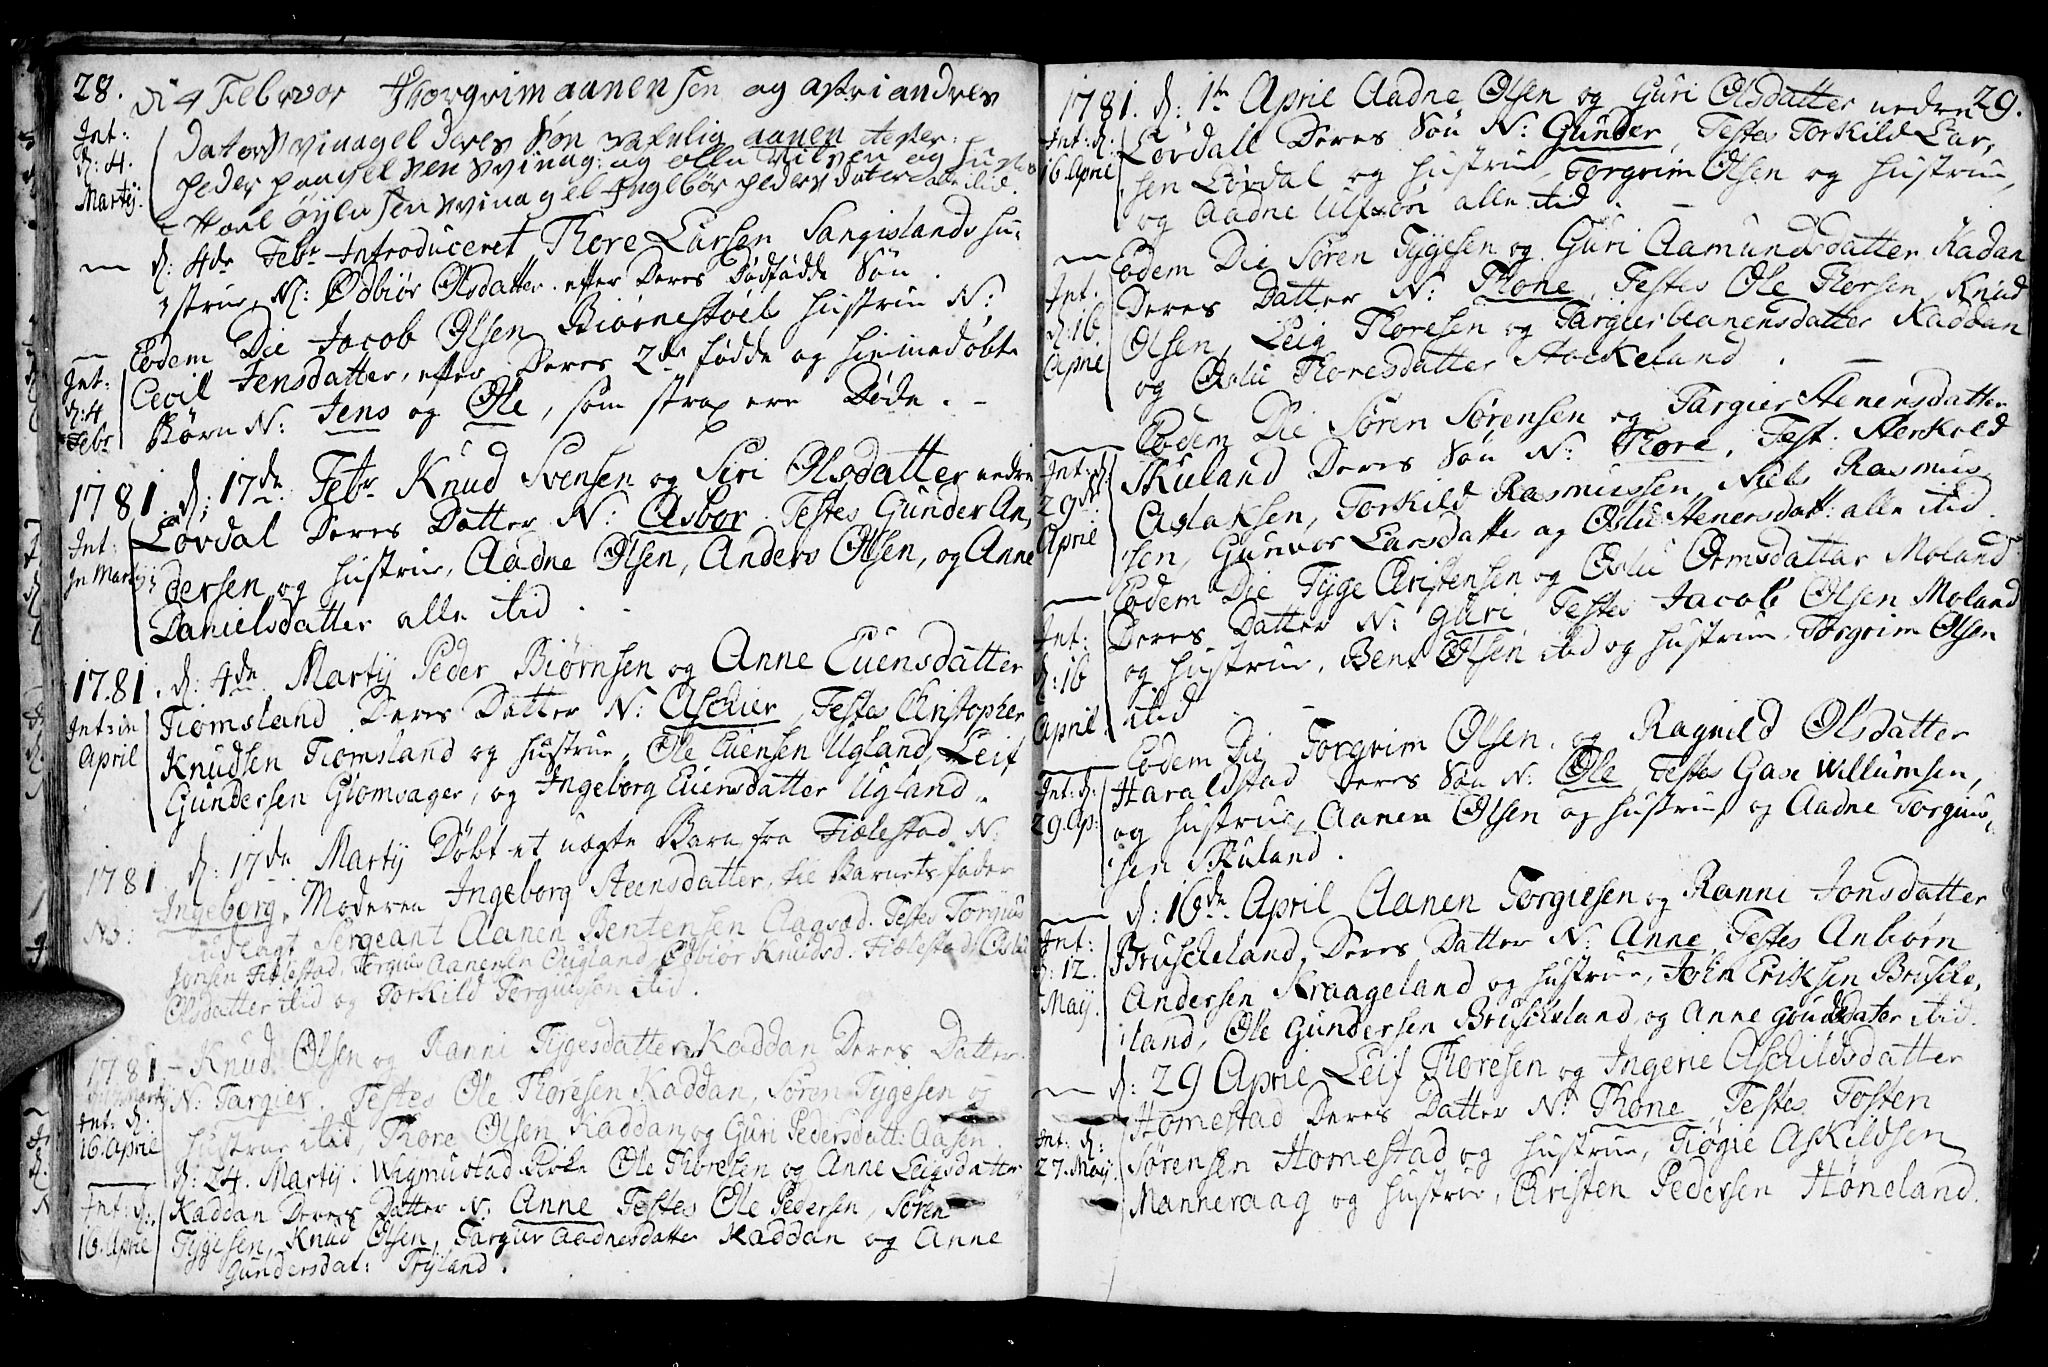 28.
di 4 Februar Thorgrim aanensen og astri andres
Int:
d: 4.
Martij.
dater vinagel deres Søn nafnlig aanen tester:
peder paaselsen vinag: og olla nilsen og hustro
vinagel Ingebør peders dater alle itid.
d: 4de Febr Introduceret Thore Larsen Sangislands hu-
strue N: Ødbiør Olsdatter efter Deres Dødfødde Søn.
Int:
d: 4
Febr
Eodem Die Jacob Olsen Biørnestøels hustrue N:
Cecil Jensdatter, efter Deres 2de fødde og hiemmedøbte
Børn N: Jens og Ole, som strax ere Døde.
1781. d: 17de Febr Knud Svensen og Siri Olsdatter nedre
Int:
In Martij:
Løvdal Deres Datter N: Asbør. Testes Gunder An-
dersen og hustrue, Aadne Olsen, Anders Olsen, og Anne
Danielsdatter alle itid.
1781. d: 4de Martij Peder Biørnsen og Anne Evensdatter
Int: in
April
Tiomsland Deres Datter N: Aschier, Testes Christopher
Knudsen Tiomsland og hustrue, Ole Evensen Ugland, Leif
Gundersen Giomsager, og Ingeborg Evensdatter Ugland.
1781 d: 17de Martij Døbt et uægte Barn fra Fiælestad N:
Ns:
Ingeborg. Moderen Ingeborg Steensdatter, til Barnets fader
udlagt Sergeant Aanen Bentensen Aagsød. Testes Torgius
Jonsen Fiælestad, Torgius Aanensen Øugland, Ødbiør Knudsd. Fiælestad, Oslu
Olsdatter itid og Torkild Torgiussøn itid.
1781 - Knud Olsen og Ranni Tygesdatter Kaddan Deres Datter
Int: d.
16. April
N: Targier. Testes Ole Thoresen Kaddan, Søren Tygesen og
hustrue itid, Thore Olsen Kaddan og Guri Pedersdatt: Aasen.
d: 24. Martij. Wigmustad Kirke Ole Thoresen og Anne Leigsdatter
Int: d:
16. April
Kaddan Deres Datter N: Anne Testes Ole Pedersen, Søren
Tygesen, Knud Olsen, Targier Aadnesdatter Kaddan og Anne
Gundersdat: Tryland.
1781. d: 1te April Aadne Olsen og Guri Olsdatter nedre 29.
Int: d:
16. April
Løvdall Deres Søn N: Gunder, Testes Torkild Lar-
sen Løvdal og hustrue, Torgrim Olsen og hustrue,
og Aadne Ulfsøn alle itid.
Eodem Die Søren Tygesen og Guri Aamundsdatter Kadan
Int.
d: 16
April
Deres Datter N: Thone, Testes Ole Thorsen, Knud
Olsen, Leig Thoresen og Targier Aanensdatter Kaddan
og Oslu Thoresdatter Stockeland.
Eodem Die Søren Sørensen og Targier Stenensdatter
Int: d:
29de
April
Skuland Deres Søn N: Thore, Test. Sterkold
Aslaksen, Torkild Rasmussen, Niels Rasmus-
sen, Gunvor Larsdatte og Oslu Stenersdatt: alle itid.
Eodem Die Tyge Christensen og Oslu Ormsdattar Moland
Int:
d: 16
April.
Deres Datter N: Guri Testes Jacob Olsen Moland
og hustrue, Bent Olsen itid og hustrue, Torgrim Olsen
itid
Eodem Die Torgrim Olsen og Ragnild Olsdatter
Int: d:
29. Ap:
Haraldstad Deres Søn N: Ole, Testes Gase Willumsen,
og hustrue, Aanen Olsen og hustrue, og Aadne Torgius-
sen Skuland.
d: 16de April Aanen Torgiesen og Ranni Jonsdatter
Int:
d: 12.
Maij.
Bruskeland, Deres Datter N: Anne, Testes Anbiørn
Andersen Kraageland og hustrue, John Eriksen Bruske-
land, Ole Gundersen Bruskeland, og Anne Goudsdater itid.
d: 29 April Leif Thoresen og Ingerie Aschildsdatter
Int: d:
27. Maij.
Homestad Deres Datter N: Thone, Testes Tosten
Sørensen Homestad og hustrue, Tiøgie Askildsen
Manneraag og hustrue, Christen Pedersen Høneland.